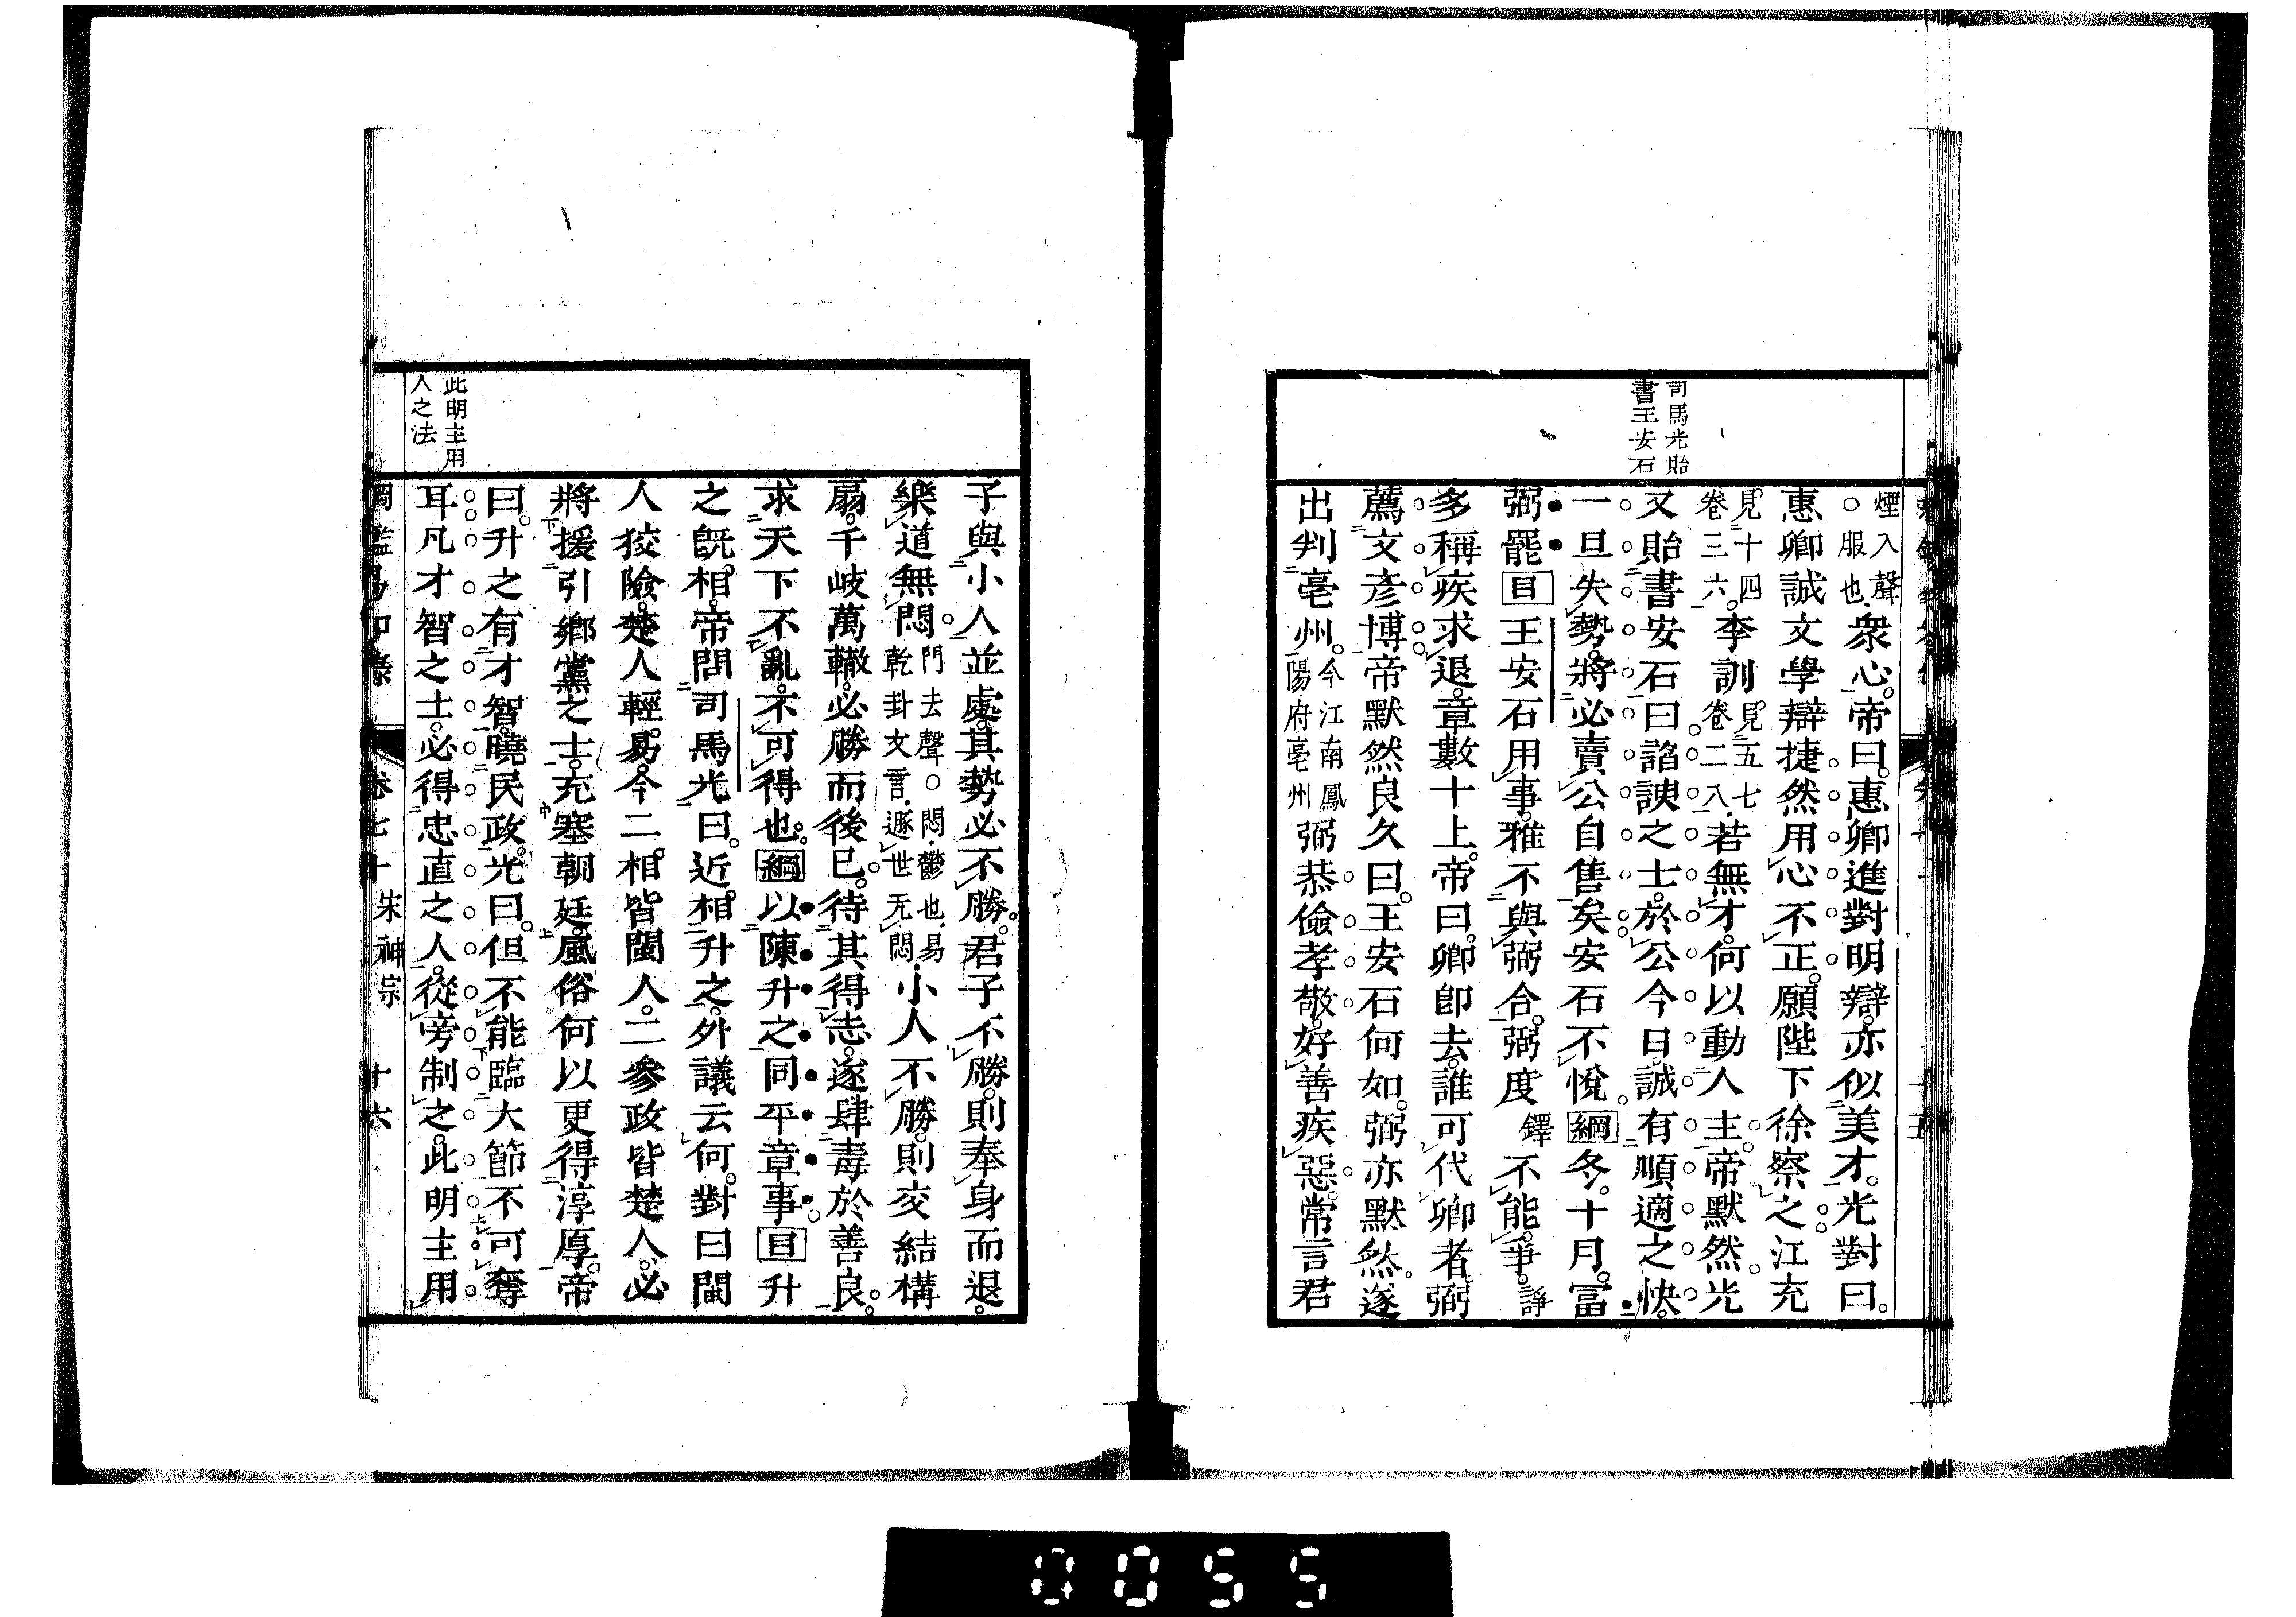 司馬光貽
書王安石
煙入聲
○服也
衆心。帝曰。惠卿進對明辯。亦似美才。光對曰。
惠卿誠文學辯捷。然用心不正。願陛下徐察之。江充
見十四
卷三六。
李訓
見五七
卷二八
若無才。何以動人主。帝默然。光
又貽書安石曰。諂諛之士。於公今日。誠有順適之快。
一旦失勢。將必賣公自售矣。安石不悅。綱冬。十月。富
弼罷目王安石用事。雅不與弼合。弼度鐸不能爭。諍
多稱疾求退。章數十上。帝曰。卿卽去。誰可代卿者。弼
薦文彥博。帝默然。良久曰。王安石何如。弼亦默然。遂
出判亳州。
今江南鳳
陽府亳州
弼恭儉孝敬。好善疾惡。常言君
此明主用
人之法
子與小人並處。其勢必不勝。君子不勝。則奉身而退。
樂道無悶
門去聲○悶鬱也易
乾卦文言遯世无悶
小人不勝。則交結構
扇。千岐萬轍。必勝而後已。待其得志。遂肆毒於善良。
求天下不亂。不可得也。綱以陳升之同平章事目升
之旣相。帝問司馬光曰。近相升之。外議云何。對曰閩
人狡險。楚人輕易。今二相皆閩人。二參政皆楚人。必
將援引鄉黨之士。充塞朝廷。風俗何以更得淳厚。帝
曰。升之有才智。曉民政。光曰。但不能臨大節不可奪
耳。凡才智之士。必得忠直之人。從旁制之。此明主用
綱鑑易知錄 卷七十 宋神宗 十六
0055